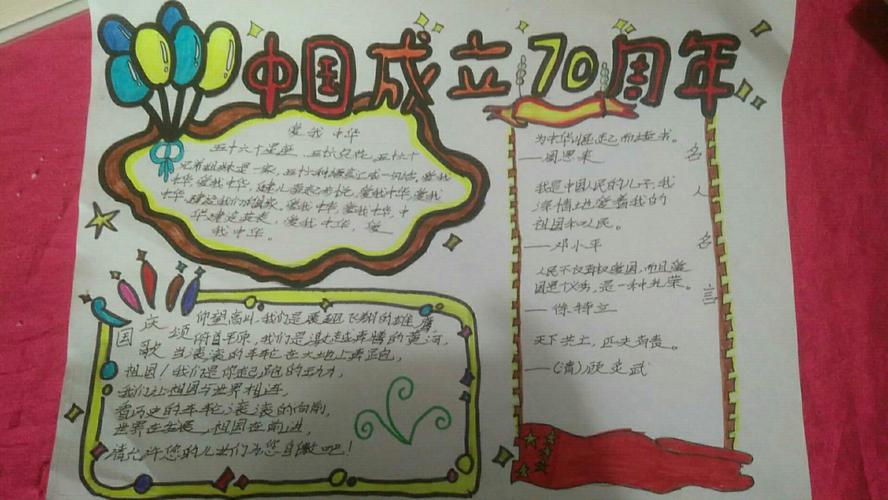 中国成立70周年
爱我中华
五十六个星座,五十六只花,五十六个
兄弟姐妹是一家,五十六种语言汇成一句话,爱我
中华,爱我中华,健儿奋起步伐,爱我中华,爱我
中华,建设我们的国家,爱我中华,爱我中华,中
华雄姿英发,爱我中华,爱
我中华。
国庆歌颂
仰望高山,我们是展翅飞翔的雄鹰
俯首平原,我们是激越奔腾的黄河,
当滚滚的车轮在大地上奔跑,
祖国!我们是你起跑的活力,
我们让祖国与世界相连,
看历史的车轮滚滚的向前,
世界在发展,祖国在前进,
请允许您的儿女们为您自傲吧!
名人名言
为中华崛起而读书。
——周恩来
我是中国人民的儿子,我
深情地爱着我的
祖国和人民。
——邓小平
人民不仅有权爱国,而且爱
国是个义务,是一种光荣。
——徐特立
天下兴亡,匹夫有责。
——(清)顾炎武